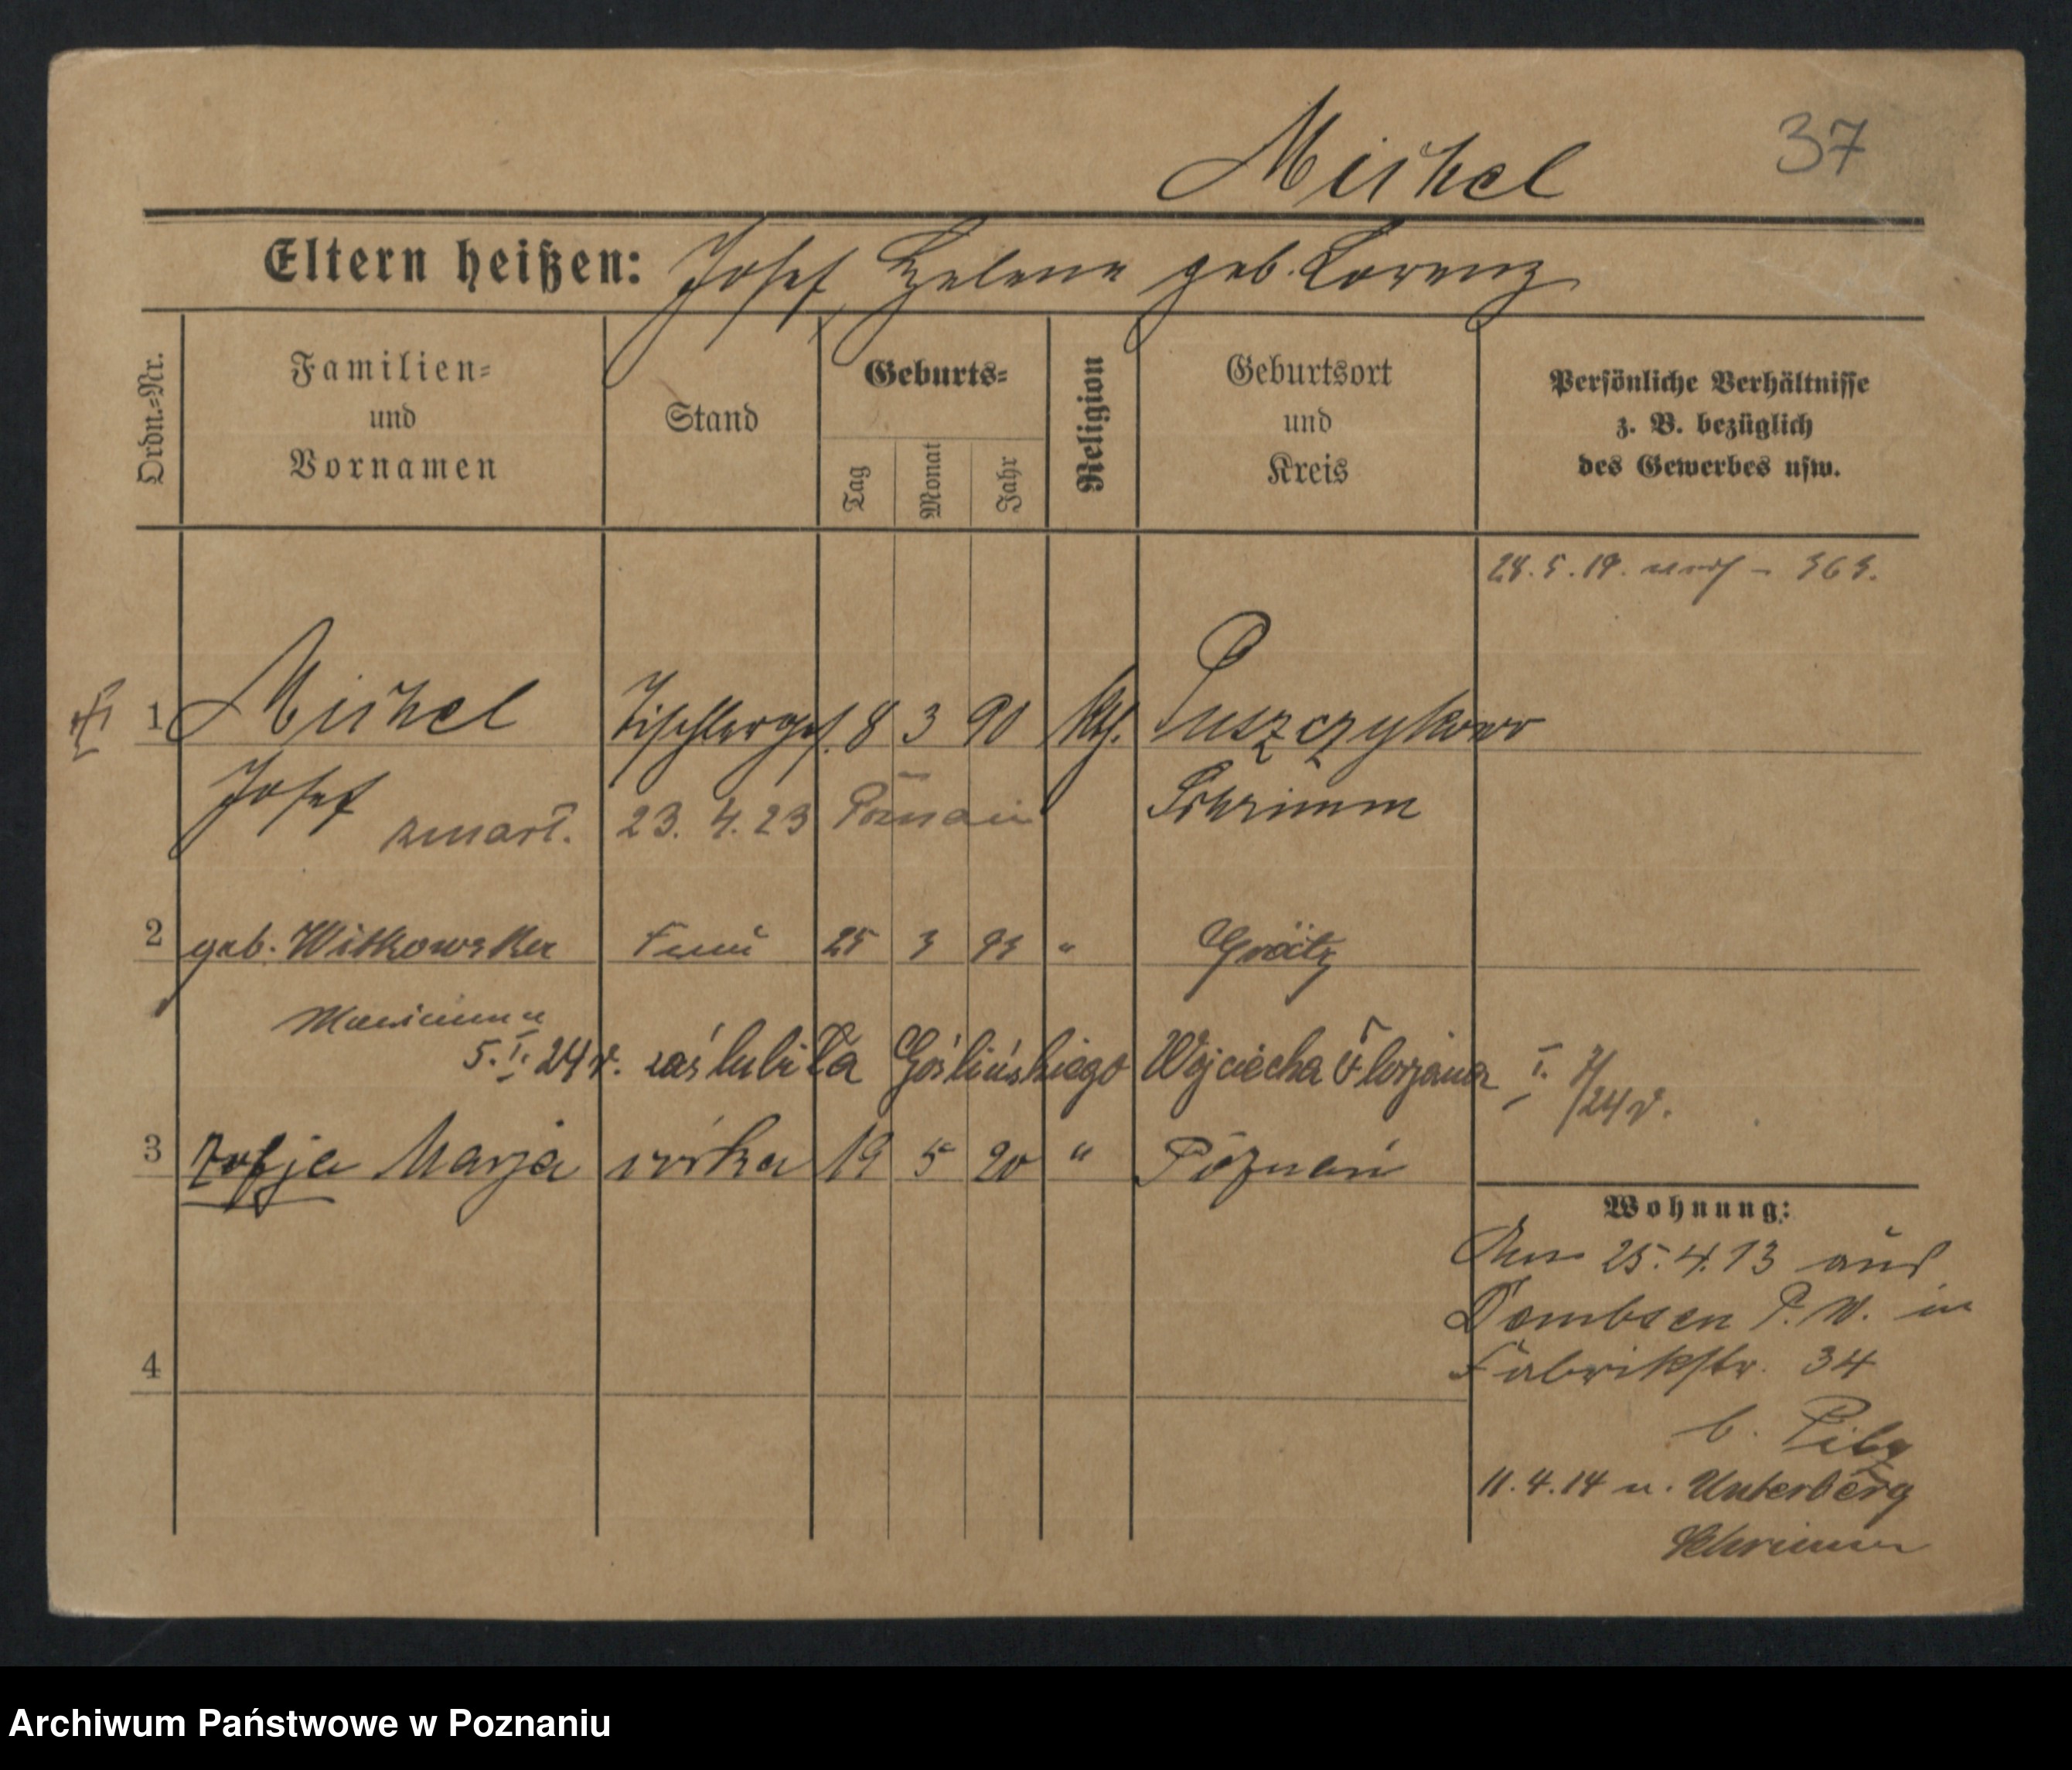 Mischel 37
Eltern heißen: Josef, Helene geb. Lorenz
Ordn.-Nr.
Familien-
und
Vornamen
Stand
Geburts-
Tag
Monat
Jahr
Religion
Geburtsort
und
Kreis
Persönliche Verhältnisse
z. B. bezüglich
des Gewerbes usw.
28.5.19. - 363.
1 Mischel Tischlerges. 8 3 90 kth. Puszczykowo
Josef Schrimm
zmarł. 23. 4. 23 Poznań
2 geb. Witkowska Frau 25 3 93 " Grätz
Marianna
5. I. 24 r. zaślubiła Goślińskiego Wojciecha Florjana I. 7/24 r.
3 Zofja Marja córka 19 5 20 " Poznań
Wohnung:
Am 25.4.13 aus
Dombsen P. W. in
Fabrikstr. 34
b. Pilz
11.4.14 n. Unterberg
Schrimm
4
Archiwum Państwowe w Poznaniu